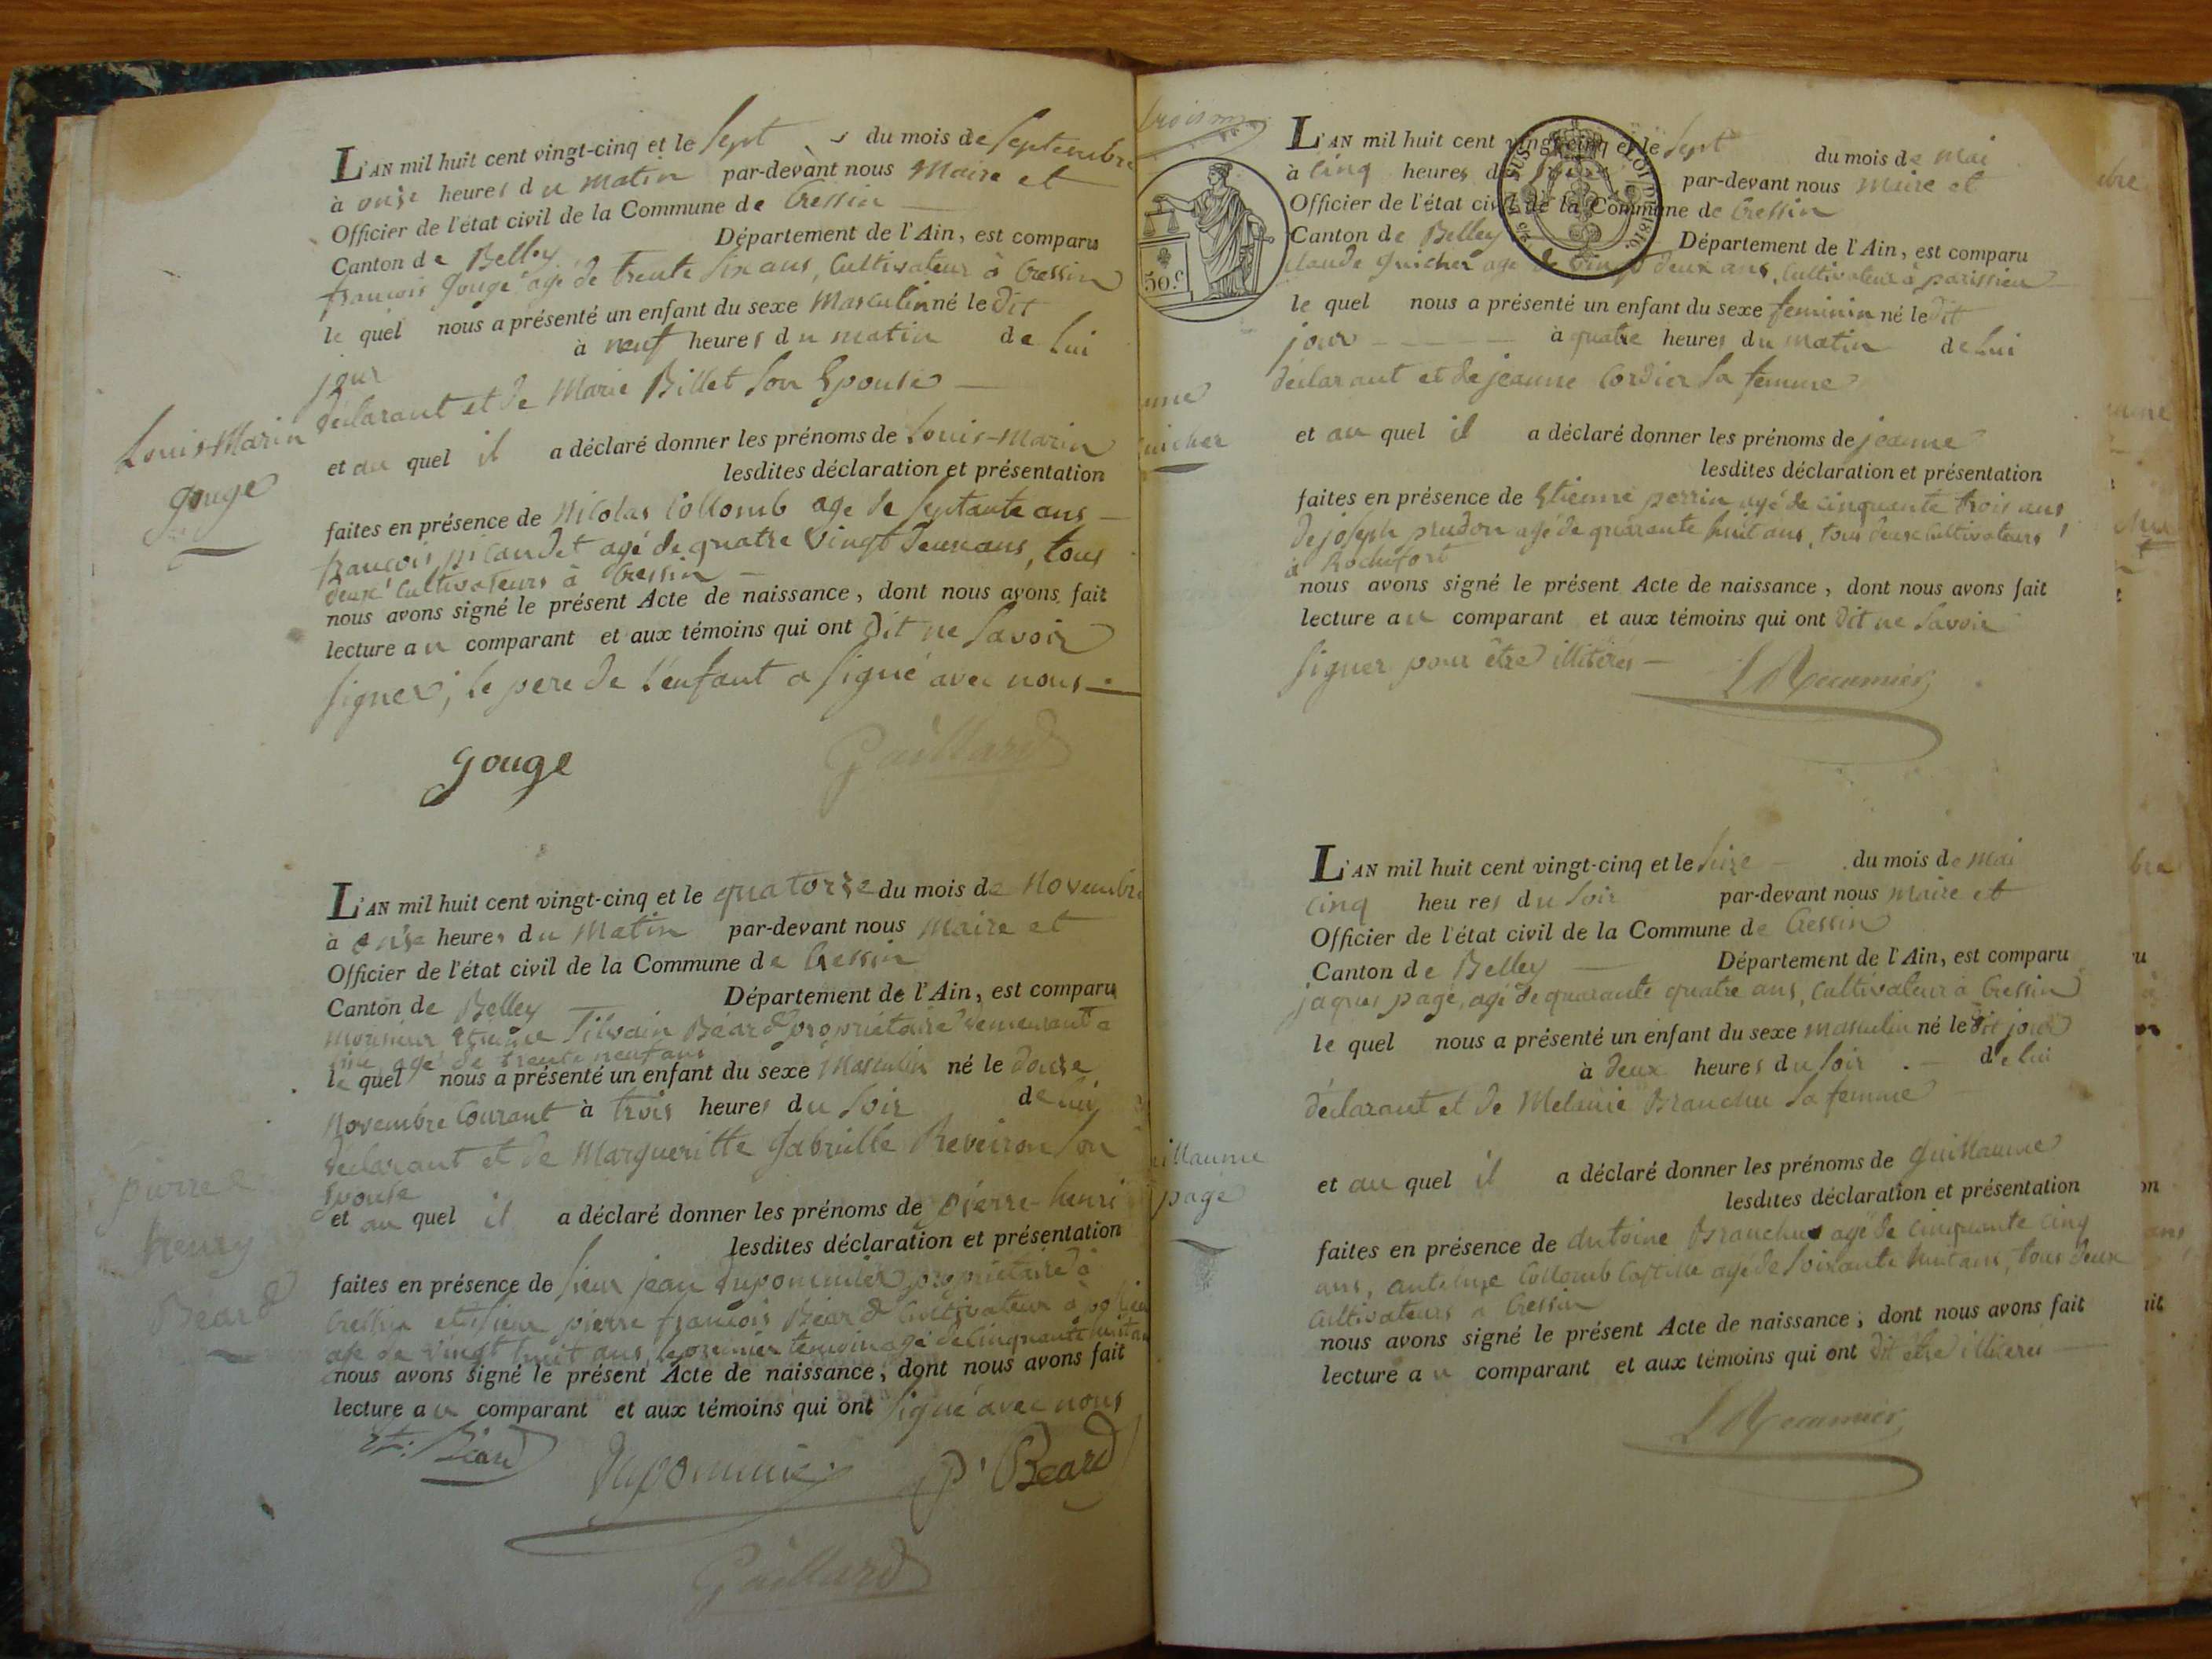 L'AN mil huit cent vingt-cinq et le Sept du mois de Septembre
à onze heures du matin par-devant nous Maire et
Officier de l'état civil de la Commune de Cressin
Canton de Belley Département de l'Ain, est comparu
françois Gougé agé de trente six ans, Cultivateur à Cressin
le quel nous a présenté un enfant du sexe Masculin né le dit
jour à neuf heures du matin de lui
déclarant et de Marie Billet son Epouse
et au quel il a déclaré donner les prénoms de Louis-Marin
lesdites déclaration et présentation
faites en présence de Nicolas Collomb agé de septante ans
françois picaudet agé de quatre vingt deux ans, tous
deux Cultivateurs à Cressin
nous avons signé le présent Acte de naissance, dont nous avons fait
lecture au comparant et aux témoins qui ont dit ne savoir
signer; le pere de l'enfant a signé avec nous
Louis-Marin
gouge
gouge
Gaillard
L'AN mil huit cent vingt-cinq et le quatorze du mois de Novembre
à onze heures du Matin par-devant nous Maire et
Officier de l'état civil de la Commune de Cressin
Canton de Belley Département de l'Ain, est comparu
monsieur Silvain Béard propriétaire demeurant a
agé de trente neuf ans
le quel nous a présenté un enfant du sexe Masculin né le douze
Novembre Courant à trois heures du soir de lui
déclarant et de Margueritte Gabrielle Reveiron son
Epouse
et au quel il a déclaré donner les prénoms de pierre-henri
lesdites déclaration et présentation
faites en présence de sieur jean Dupommier propriétaire à
Cressin et sieur pierre françois Béard Cultivateur à
age de vingt huit ans, le premier temoin agé de Cinquante huit ans
nous avons signé le présent Acte de naissance, dont nous avons fait
lecture au comparant et aux témoins qui ont signé avec nous
pierre
henry
Beard
Et: Béard Dupommier P. Beard
Gaillard
L'AN mil huit cent vingt-cinq et le sept du mois de Mai
à cinq heures du par-devant nous maire et
Officier de l'état civil de la Commune de Cressin
Canton de Belley Département de l'Ain, est comparu
Claude guicher agé de vingt deux ans, Cultivateur à parissieu
le quel nous a présenté un enfant du sexe feminin né le dit
jour à quatre heures du matin de lui
déclarant et de jeanne Cordier sa femme
et au quel il a déclaré donner les prénoms de jeanne
lesdites déclaration et présentation
faites en présence de Etienne perrin agé de cinquante trois ans
de joseph prudon agé de quarante huit ans, tous deux Cultivateurs
à Rochefort
nous avons signé le présent Acte de naissance, dont nous avons fait
lecture au comparant et aux témoins qui ont dit ne savoir
signer pour être illitérés
50.c
LOI DE 1816
L'AN mil huit cent vingt-cinq et le seize du mois de Mai
cinq heures du soir par-devant nous maire et
Officier de l'état civil de la Commune de Cressin
Canton de Belley Département de l'Ain, est comparu
jaques pagé, agé de quarante quatre ans, Cultivateur à Cressin
le quel nous a présenté un enfant du sexe masculin né le dit jour
à deux heures du soir de lui
déclarant et de Melanie Branchu sa femme
et au quel il a déclaré donner les prénoms de guillaume
lesdites déclaration et présentation
faites en présence de Antoine Branchu agé de cinquante cinq
ans, antelme Collomb Castille agé de soixante huit ans, tous deux
Cultivateurs à Cressin
nous avons signé le présent Acte de naissance; dont nous avons fait
lecture au comparant et aux témoins qui ont dit être illiterés
pagé